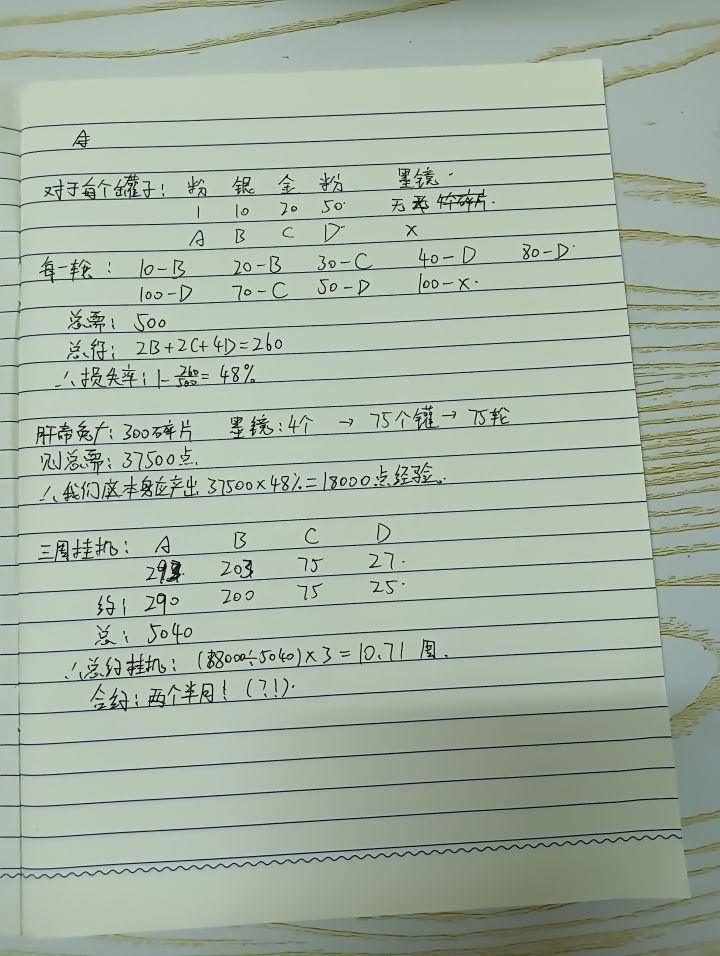 对于每个罐子: 粉 银 金 粉 墨镜.
1 10 20 50. 无 碎片.
A B C D X
每一轮: 10-B 20-B 30-C 40-D 80-D.
100-D 70-C 50-D 100-X.
总需: 500
总得: 2B+2C+4D=260
∴损失率: 1-260/500=48%
肝帝 300碎片 墨镜:4个 → 75个罐 → 75轮
则总需: 37500点.
∴我们 本身应产出 37500×48%=18000点经验.
三周挂机: A B C D
29 20 75 27.
约: 290 200 75 25.
总: 5040
∴总约挂机: (18000÷5040)×3=10.71 周.
合约: 两个半月! (?!).